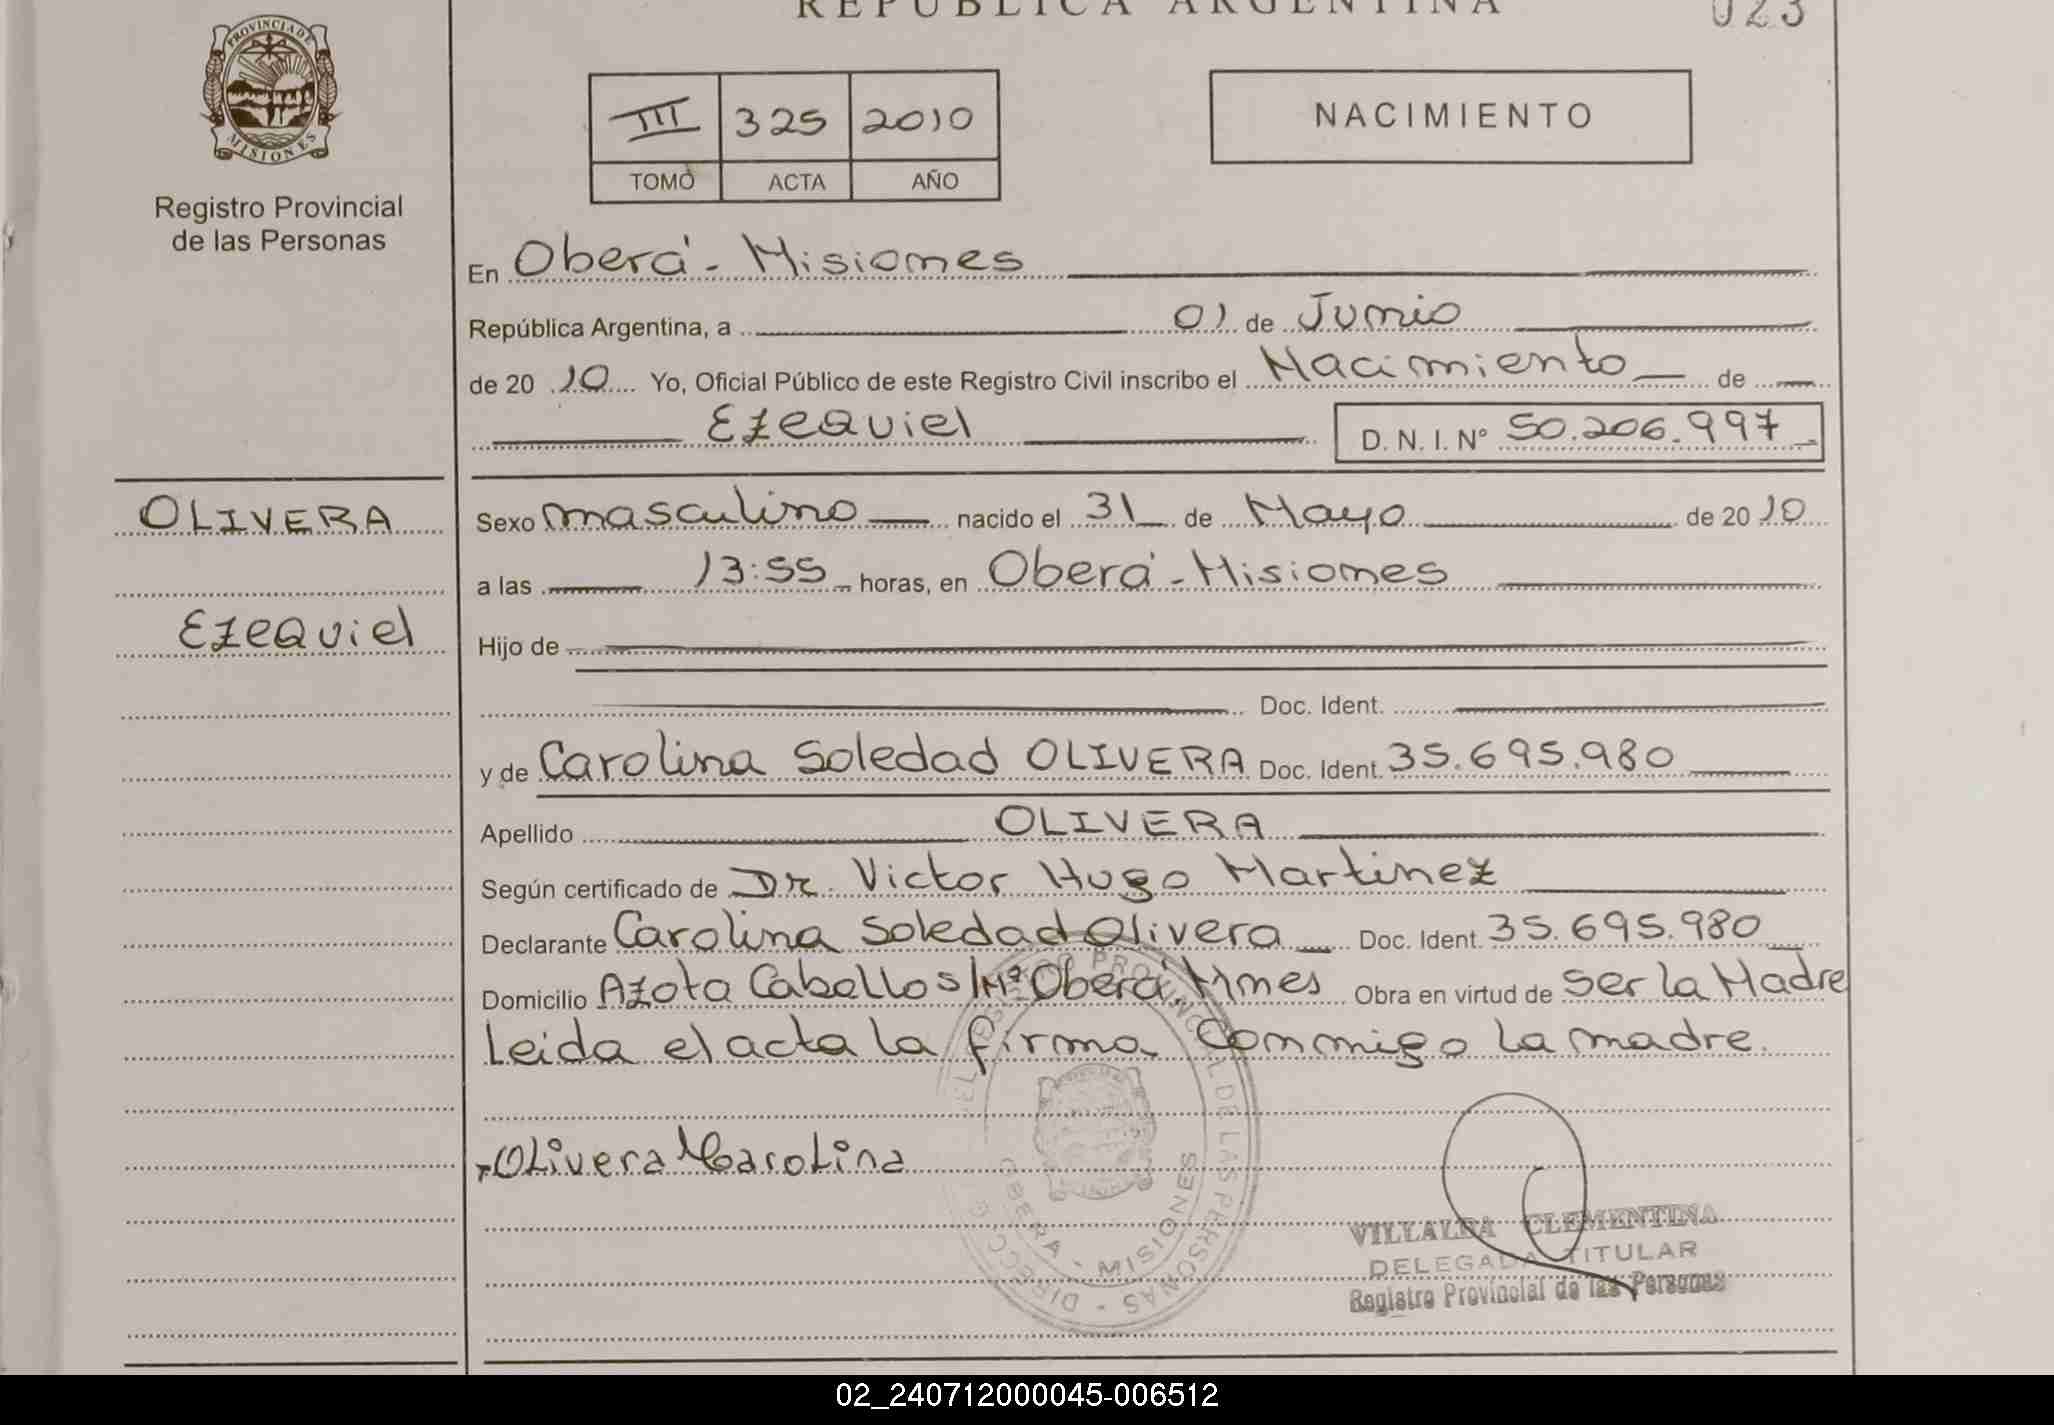 REPUBLICA ARGENTINA
023
PROVINCIA DE
MISIONES
Registro Provincial
de las Personas
III 325 2010
TOMO ACTA AÑO
NACIMIENTO
En Oberá - Misiones
República Argentina, a 01 de Junio
de 20 10 Yo, Oficial Público de este Registro Civil inscribo el Nacimiento de
Ezequiel D. N. I. N° 50.206.997
OLIVERA
Ezequiel
Sexo masculino nacido el 31 de Mayo de 20 10
a las 13:55 horas, en Oberá - Misiones
Hijo de
Doc. Ident.
y de Carolina Soledad OLIVERA Doc. Ident. 35.695.980
Apellido OLIVERA
Según certificado de Dr. Victor Hugo Martinez
Declarante Carolina Soledad Olivera Doc. Ident. 35.695.980
Domicilio Azota Caballo s/Nº Oberá, Mnes Obra en virtud de ser la Madre
Leida el acta la firma conmigo la madre.
Olivera Carolina
OBERA - MISIONES
VILLALBA CLEMENTINA
DELEGADA TITULAR
Registro Provincial de las Personas
02_240712000045-006512